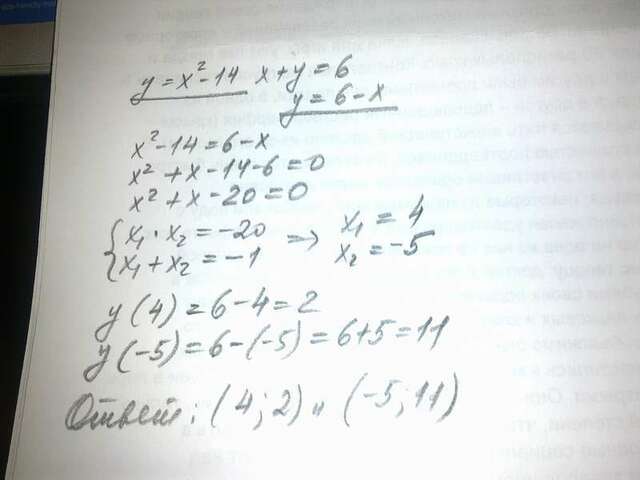 y = x² - 14   x + y = 6
y = 6 - x
x² - 14 = 6 - x
x² + x - 14 - 6 = 0
x² + x - 20 = 0
{ x₁ · x₂ = -20 => x₁ = 4
{ x₁ + x₂ = -1   x₂ = -5
y(4) = 6 - 4 = 2
y(-5) = 6 - (-5) = 6 + 5 = 11
Ответ: (4; 2) и (-5; 11)